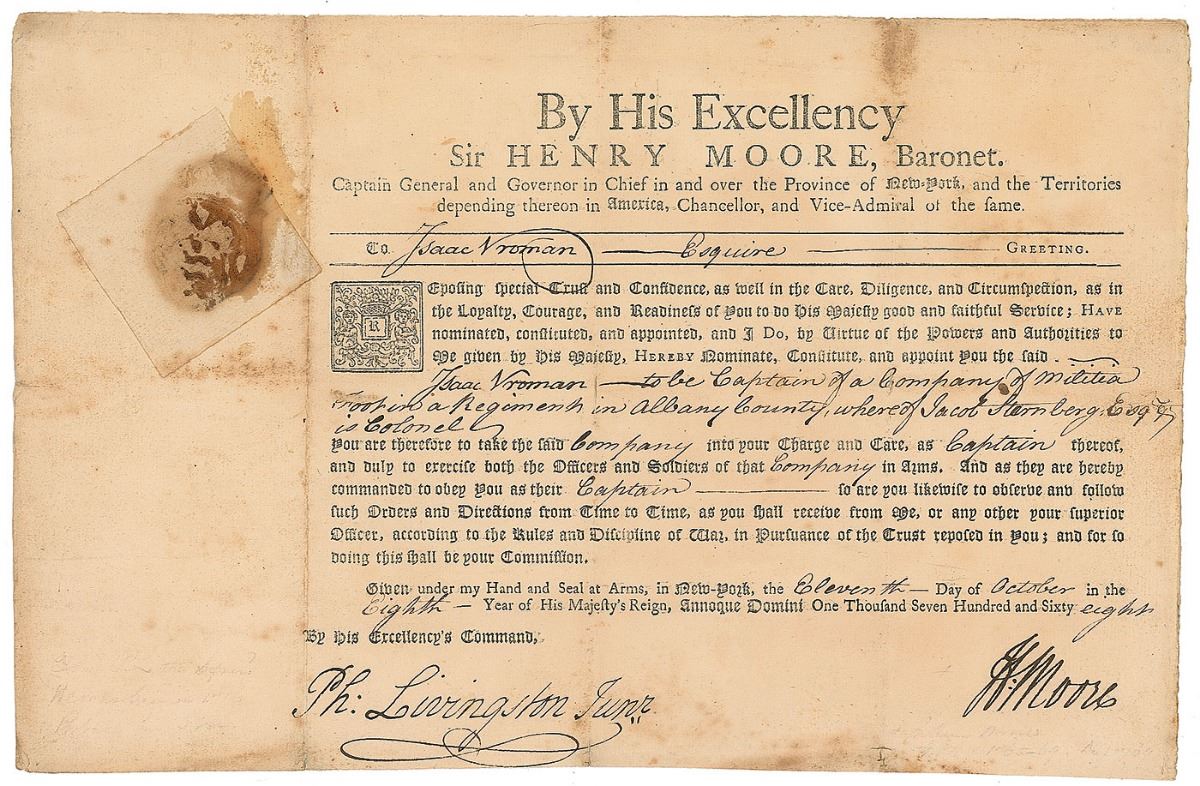 By His Excellency
Sir HENRY MOORE, Baronet.
Captain General and Governor in Chief in and over the Province of New-York, and the Territories
depending thereon in America, Chancellor, and Vice-Admiral of the same.
To Isaac Vroman Esquire GREETING.
REposing special Trust and Confidence, as well in the Care, Diligence, and Circumspection, as in
the Loyalty, Courage, and Readiness of You to do His Majesty good and faithful Service; HAVE
nominated, constituted, and appointed, and I Do, by Virtue of the Powers and Authorities to
Me given by His Majesty, HEREBY Nominate, Constitute, and appoint You the said
Isaac Vroman — to be Captain of a Company of Militia
Foot in a Regiment in Albany County, whereof Jacob Sternberg, Esqr
is Colonel
You are therefore to take the said Company into your Charge and Care, as Captain thereof,
and duly to exercise both the Officers and Soldiers of that Company in Arms. And as they are hereby
commanded to obey You as their Captain — so are you likewise to observe and follow
such Orders and Directions from Time to Time, as you shall receive from Me, or any other your superior
Officer, according to the Rules and Discipline of War, in Pursuance of the Trust reposed in You; and for so
doing this shall be your Commission.
Given under my Hand and Seal at Arms, in New-York, the Eleventh — Day of October in the
Eighth — Year of His Majesty's Reign, Annoque Domini One Thousand Seven Hundred and Sixty eight
By His Excellency's Command,
Ph: Livingston Junr.
H: Moore